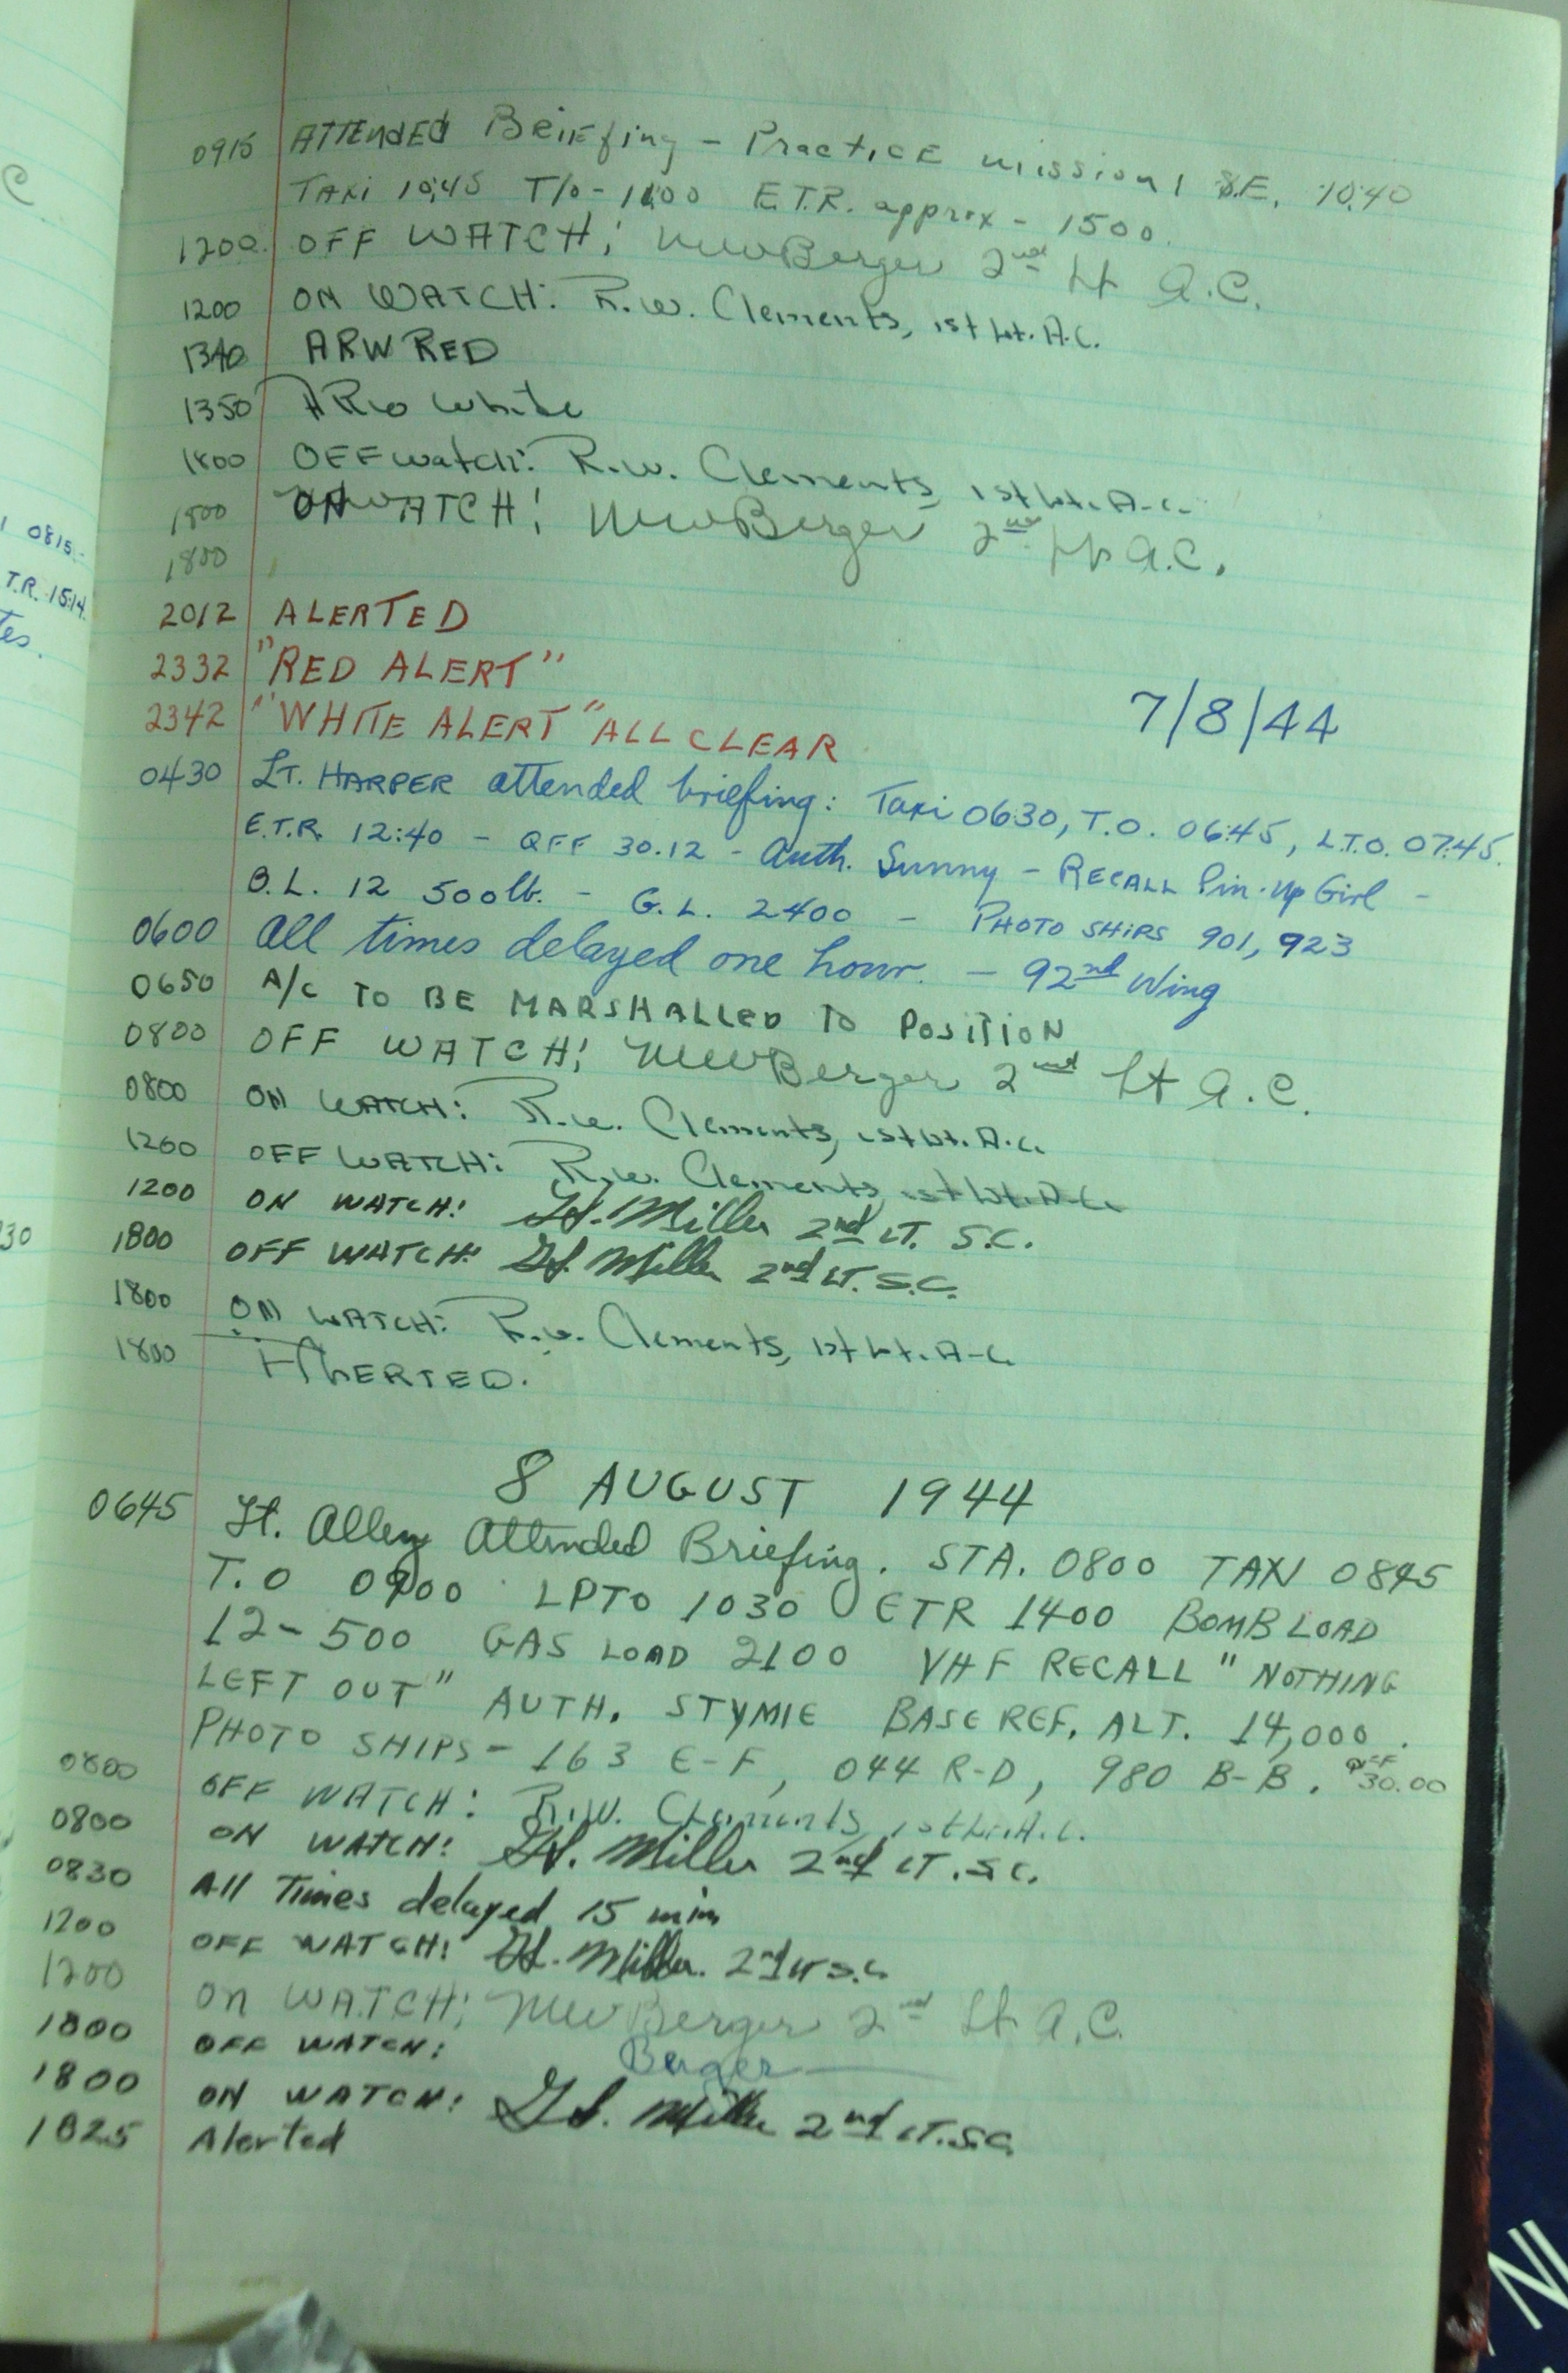 0915 ATTENDED Briefing - Practice mission! S.E. 10:40
TAXi 10:45 T/o - 1100 E.T.R. approx - 1500.
1200. OFF WATCH: MWBerger 2nd Lt A.C.
1200 ON WATCH: R.W. Clements, 1st Lt. A.C.
1340 ARW RED
1350 ARW White
1800 OFF watch: R.W. Clements, 1st Lt. A.C.
1800 ON WATCH: MWBerger 2nd Lt A.C.
1800
2012 ALERTED
2332 "RED ALERT"
2342 "WHITE ALERT" ALL CLEAR
7/8/44
0430 LT. HARPER attended briefing: Taxi 0630, T.O. 0645, L.T.O. 0745.
E.T.R. 12:40 - QFF 30.12 - Auth. Sunny - RECALL Pin-Up Girl -
B.L. 12 500lb. - G.L. 2400 - PHOTO SHiPS 901, 923
0600 All times delayed one hour. - 92nd Wing
0650 A/c TO BE MARSHALLED TO POSITION
0800 OFF WATCH: MWBerger 2nd Lt A.C.
0800 ON WATCH: R.W. Clements, 1st Lt. A.C.
1200 OFF WATCH: R.W. Clements, 1st Lt. A.C.
1200 ON WATCH: Miller 2nd LT. S.C.
1800 OFF WATCH: Miller 2nd LT. S.C.
1800 ON WATCH: R.W. Clements, 1st Lt. A.C.
1800 ALERTED.
8 AUGUST 1944
0645 Lt. Allen Attended Briefing. STA. 0800 TAXI 0845
T.O 0900 LPTO 1030 ETR 1400 BOMB LOAD
12-500 GAS LOAD 2100 VHF RECALL "NOTHING
LEFT OUT" AUTH. STYMIE BASE REF. ALT. 14,000.
PHOTO SHIPS - 163 E-F, 044 R-D, 980 B-B. QFF 30.00
0800 OFF WATCH: R.W. Clements, 1st Lt. A.C.
0800 ON WATCH: Miller 2nd LT. S.C.
0830 All Times delayed 15 min
1200 OFF WATCH: Miller. 2nd LT S.C.
1200 On WATCH: MWBerger 2nd Lt A.C.
1800 OFF WATCH: Berger
1800 ON WATCH: Miller 2nd LT. S.C.
1825 Alerted
C
0815.
T.R. 1514.
tes.
30